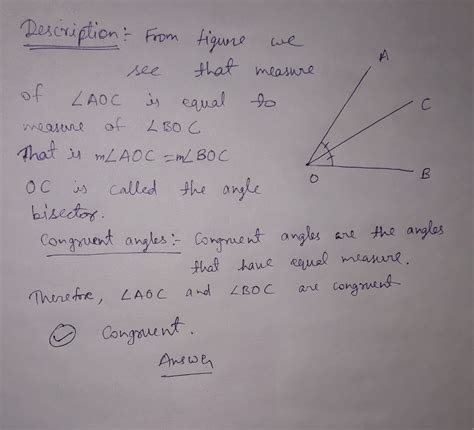 Description:- From figure we
see that measure
of ∠AOC is equal to
measure of ∠BOC
That is m∠AOC = m∠BOC
OC is called the angle
bisector.
Congruent angles:- Congruent angles are the angles
that have equal measure.
Therefore, ∠AOC and ∠BOC are congruent
Congruent.
Answer
A
C
O
B